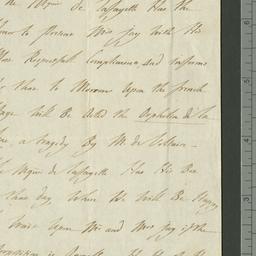 the Mqis de Lafayette Has the
to present Miss Jay With His
Respectfull Compliments, and informs
that to Morrow Upon the french
Stage Will Be Acted the Orphelin de la
a tragedy By M. de Voltaire—
Mqis de Lafayette Has His Box
that day Where He Will Be Happy
to Wait Upon Mr and Mrs Jay if the